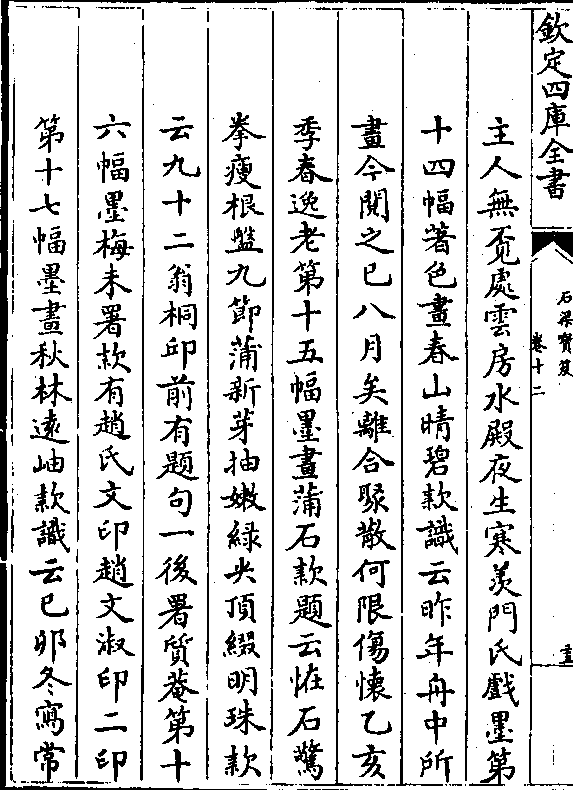 欽定四庫全書
石渠寶笈
卷十二
主人無覓處雲房水殿夜生寒羡門氏戲墨第
十四幅著色畫春山晴碧款識云昨年舟中所
畫今閱之已八月矣離合聚散何限傷懷乙亥
季春逸老第十五幅墨畫蒲石款題云怪石驚
拳瘦根盤九節蒲新芽抽嫩緑尖頂綴明珠款
云九十二翁桐邱前有題句一後署質菴第十
六幅墨梅未署款有趙氏文印趙文淑印二印
第十七幅墨畫秋林遠岫款識云己夘冬寫常